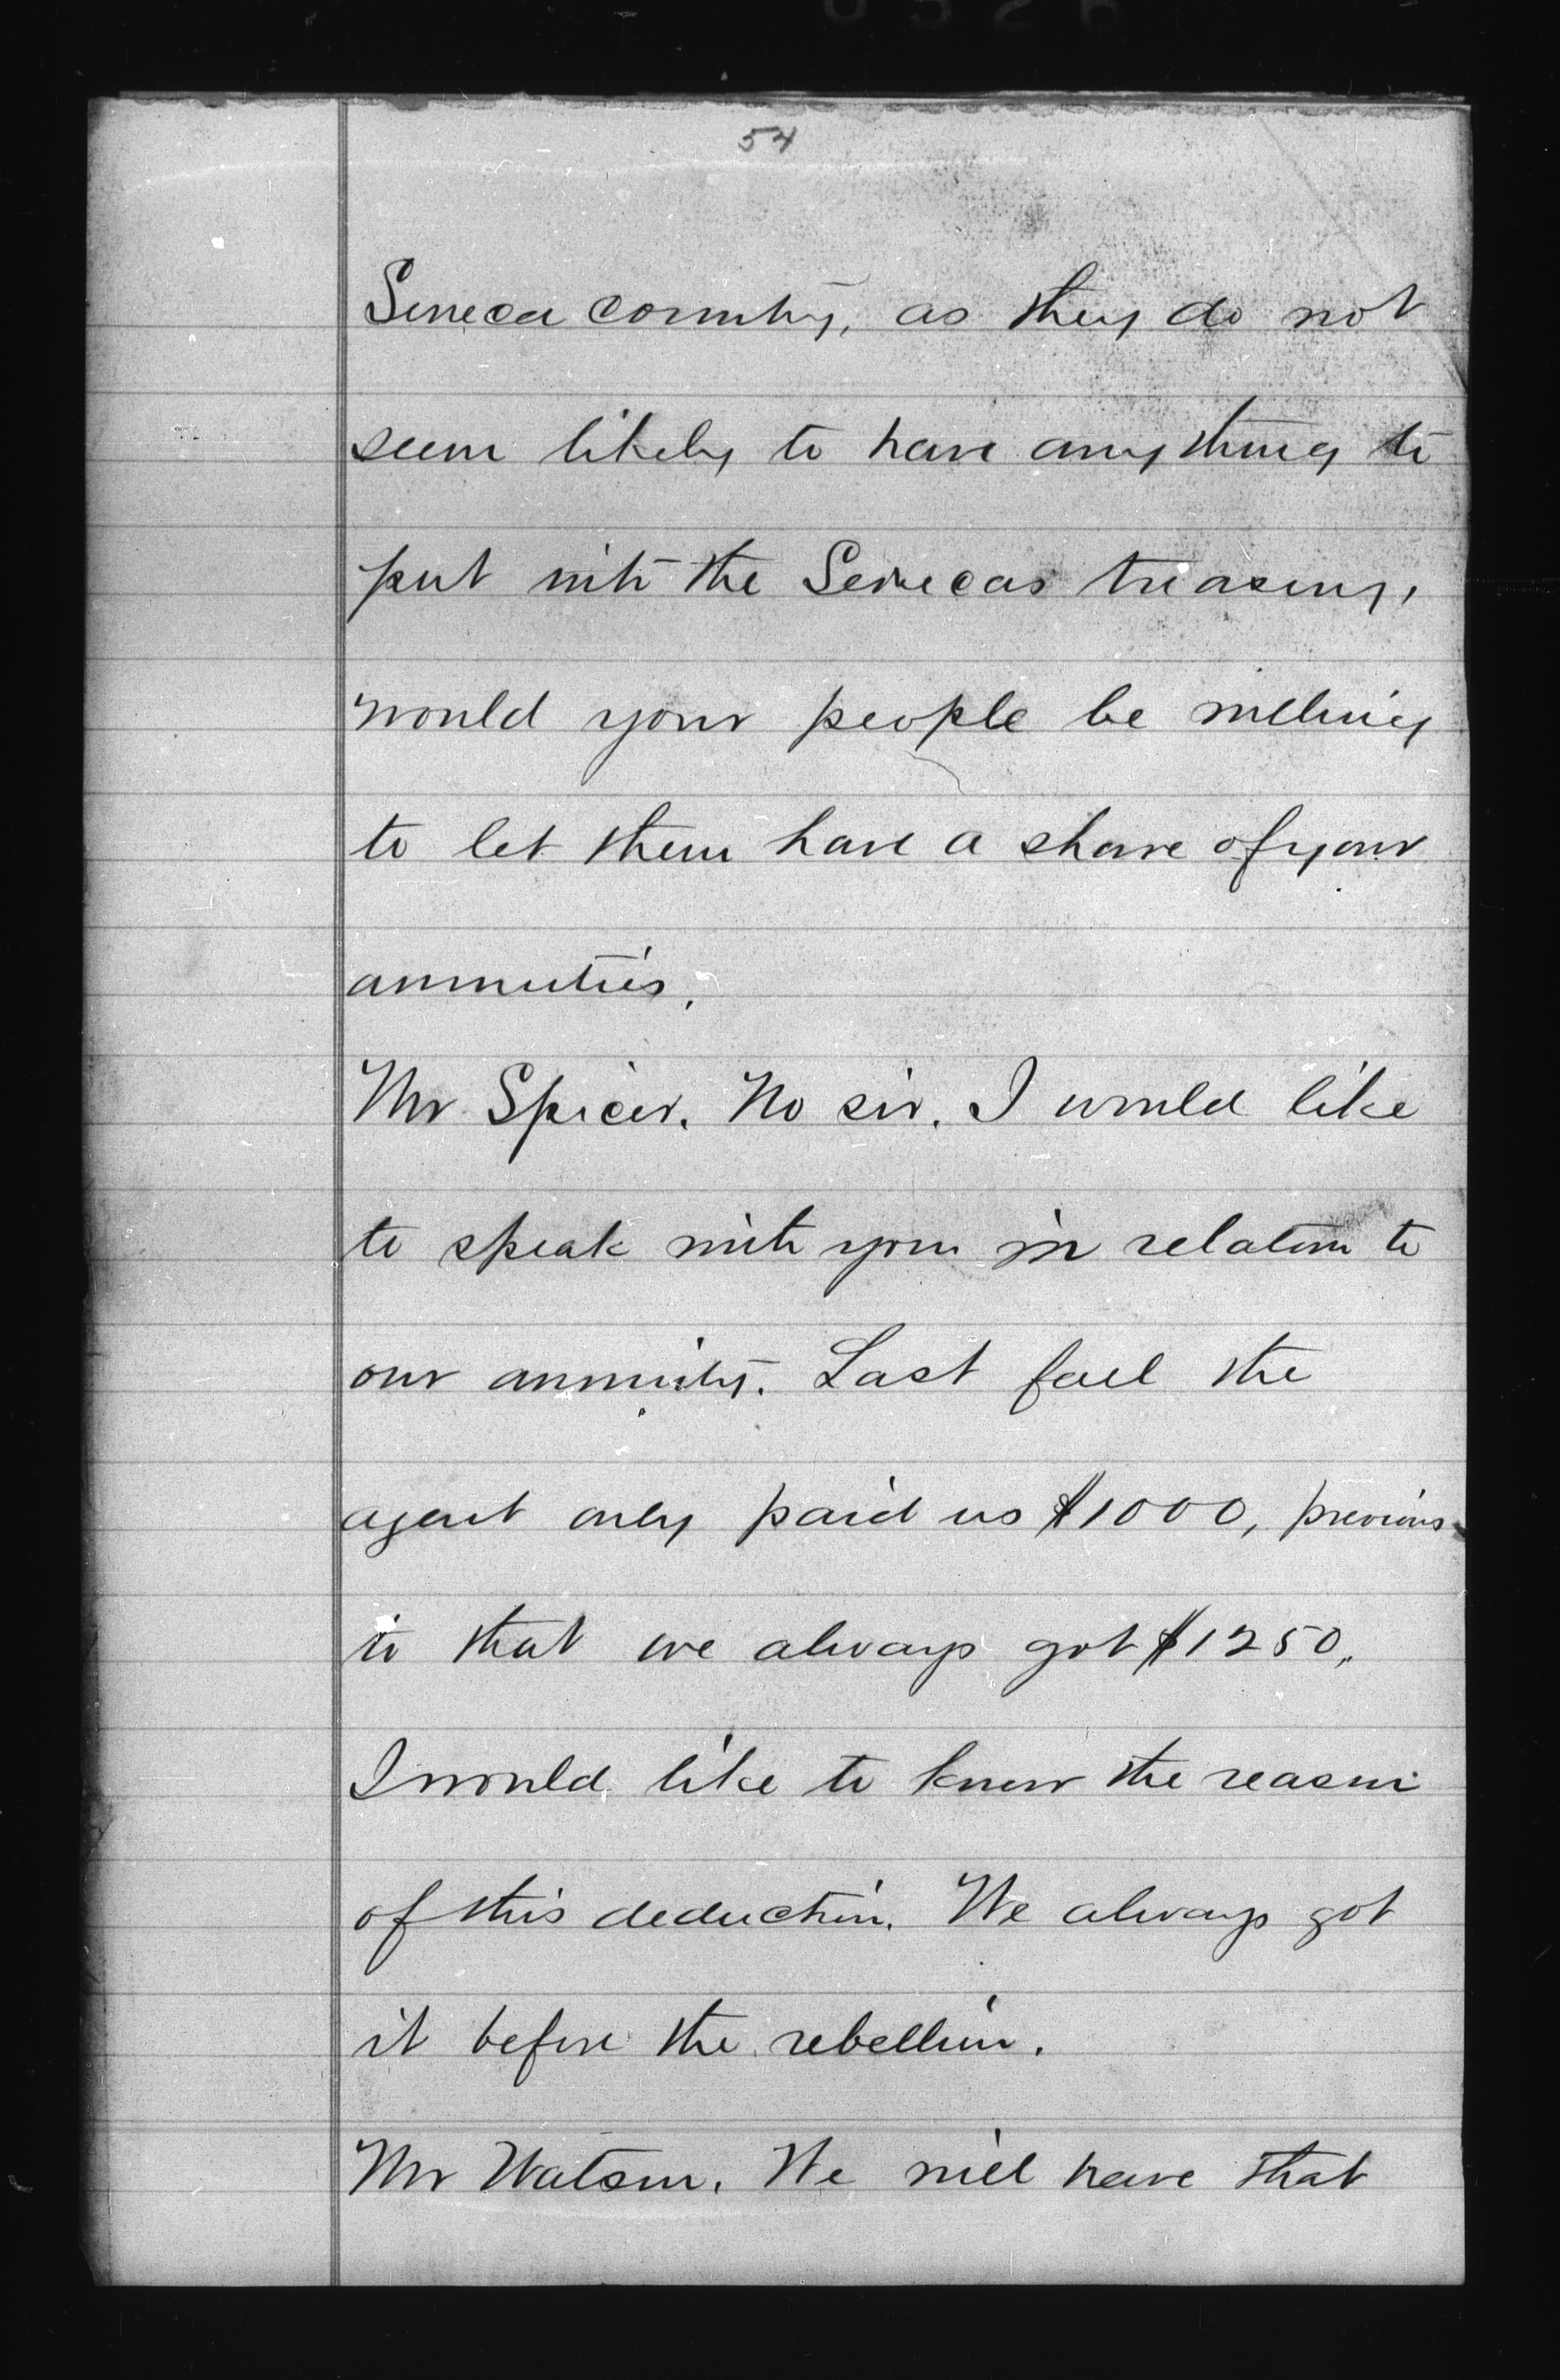 54
Seneca country, as they do not
seem likely to have any thing to
put into the Senecas treasury,
would your people be willing
to let them have a share of your
annuities.
Mr Spicer. No sir. I would like
to speak with you in relation to
our annuity. Last fall the
agent only paid us $1000, previous
to that we always got $1250.
I would like to know the reason
of this deduction. We always got
it before the rebellion.
Mr Watson. We will have that